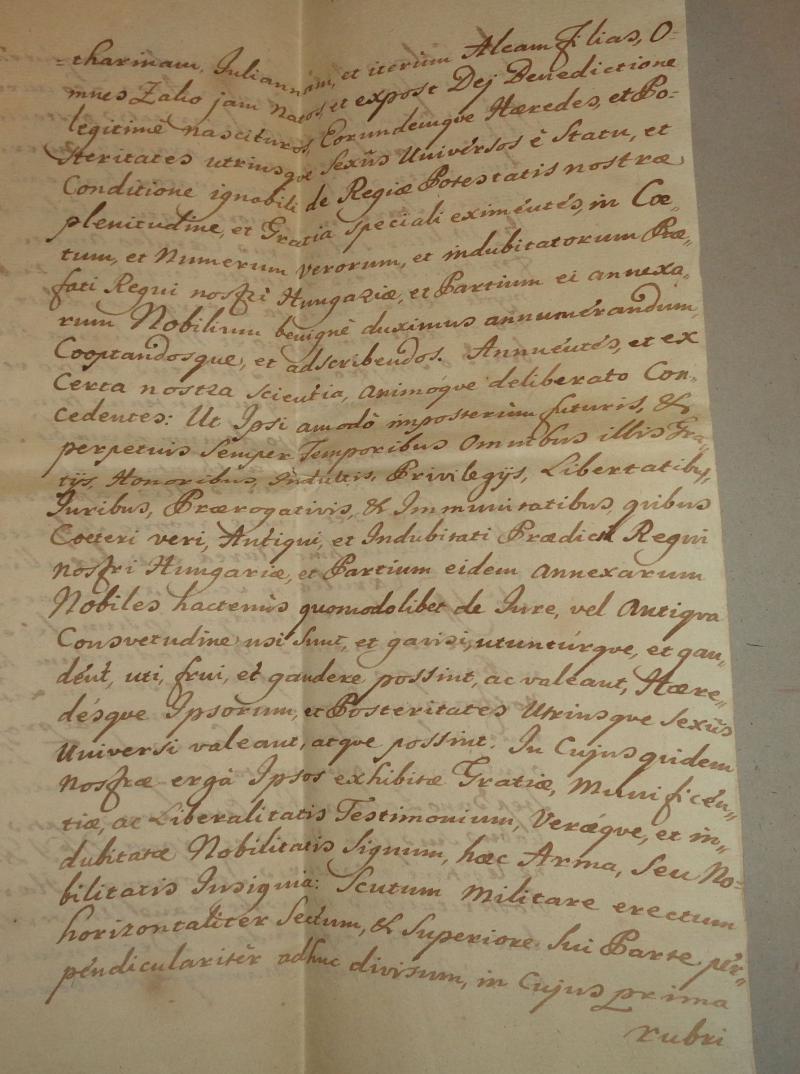 =tharinam, Juliannám, et iterùm Alcam filias, O-
mnes Zalio jam natos, et expost Dej Benedictione
legitimè nascituros, Eorundemqve Hæredes, et Po-
steritates utriusqve Sexûs Univérsos è Statu, et
Conditione ignobili de Regiæ Potestatis nostræ
plenitudine, et Gratia speciali eximéntés, in Cœ-
tum, et Numerum verorum, et indubitatorum Præ-
fati Regni nostri Hungariæ, et Partium ei annexa-
rum Nobilium benignè duximus annumérandum,
Cooptandosque, et adscribendos. Annuéntés, et ex
Certa nostra scientia, animoqve deliberato Con-
cedentes: Ut Ipsi amodò imposterùm futuris, &
perpetuis Semper Temporibus omnibus illis Gra-
tijs, Honoribus, Indultis, Privilegijs, Libertatibus,
Juribus, Prærogativis, & Immunitatibus, qvibus
Cœteri veri, Antiqui, et Indubitati Prædicti Regni
nostri Hungariæ, et Partium eidem annexarum
Nobiles hactenùs quomodolibet de Jure, vel antiqva
Consvetudine usi Sunt, et gavisi, utuntúrqve, et gau-
dént, uti, frui, et gaudere possint, ac valeant, Hære-
désqve Ipsorum, et Posteritates Utriusqve Sexûs
Universi valeant, atqve possint. In Cujus quidem
nostræ ergà Ipsos exhibitæ Gratiæ, Munificén-
tiæ, ac Liberalitatis Testimonium, Veræqve, et in-
dubitatæ Nobilitatis Signum, hæc Arma, Seu No-
bilitatis Insignia: Scutum militare erectum
horizontalitèr Sectum, & Superiore Sui Parte pér-
péndiculariter adhuc divisum, in Cujus prima
rubri